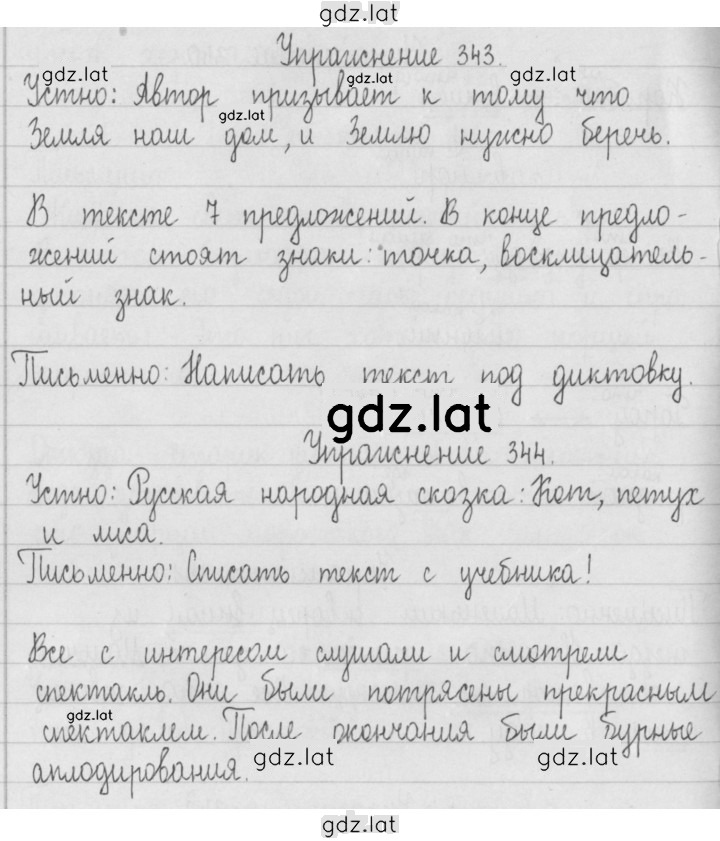 gdz.lat
Упражнение 343.
gdz.lat
gdz.lat
Устно: Автор призывает к тому что
gdz.lat
Земля наш дом, и Землю нужно беречь.
В тексте 7 предложений. В конце предло-
жений стоят знаки: точка, восклицатель-
ный знак.
Письменно: Написать текст под диктовку.
gdz.lat
Упражнение 344.
Устно: Русская народная сказка: Кот, петух
и лиса.
Письменно: Списать текст с учебника!
Все с интересом слушали и смотрели
спектакль. Они были потрясены прекрасным
gdz.lat
спектаклем. После окончания были бурные
аплодирования.
gdz.lat
gdz.lat
gdz.lat